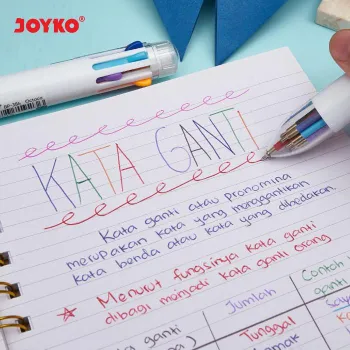 JOYKO
KATA GANTI
Kata ganti atau Pronomina
merupakan kata yang menggantikan
kata benda atau kata yang dibedakan.
★ Menurut fungsinya kata ganti
dibagi menjadi kata ganti orang
Jumlah
Contoh
ganti
Tunggal
ganti